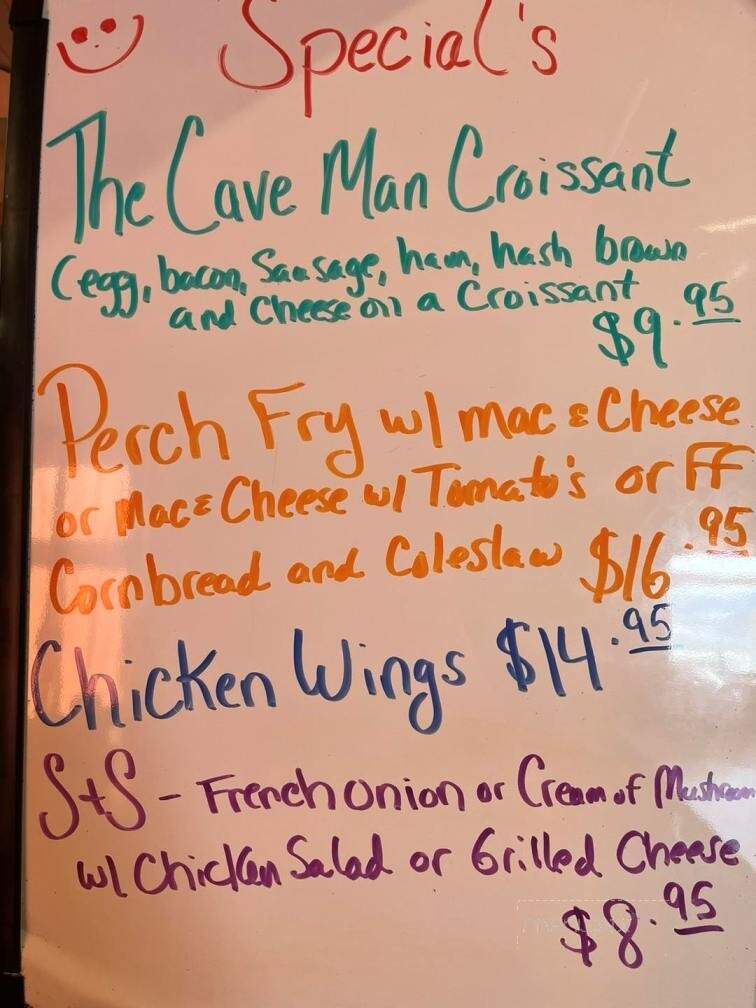 Special's
The Cave Man Croissant
(egg, bacon, Sausage, ham, hash brown
and Cheese on a Croissant
$9.95
Perch Fry w/ mac & Cheese
or Mac & Cheese w/ Tomato's or FF
Cornbread and Coleslaw $16.95
Chicken Wings $14.95
S+S - French Onion or Cream of Mushroom
w/ Chicken Salad or Grilled Cheese
$8.95